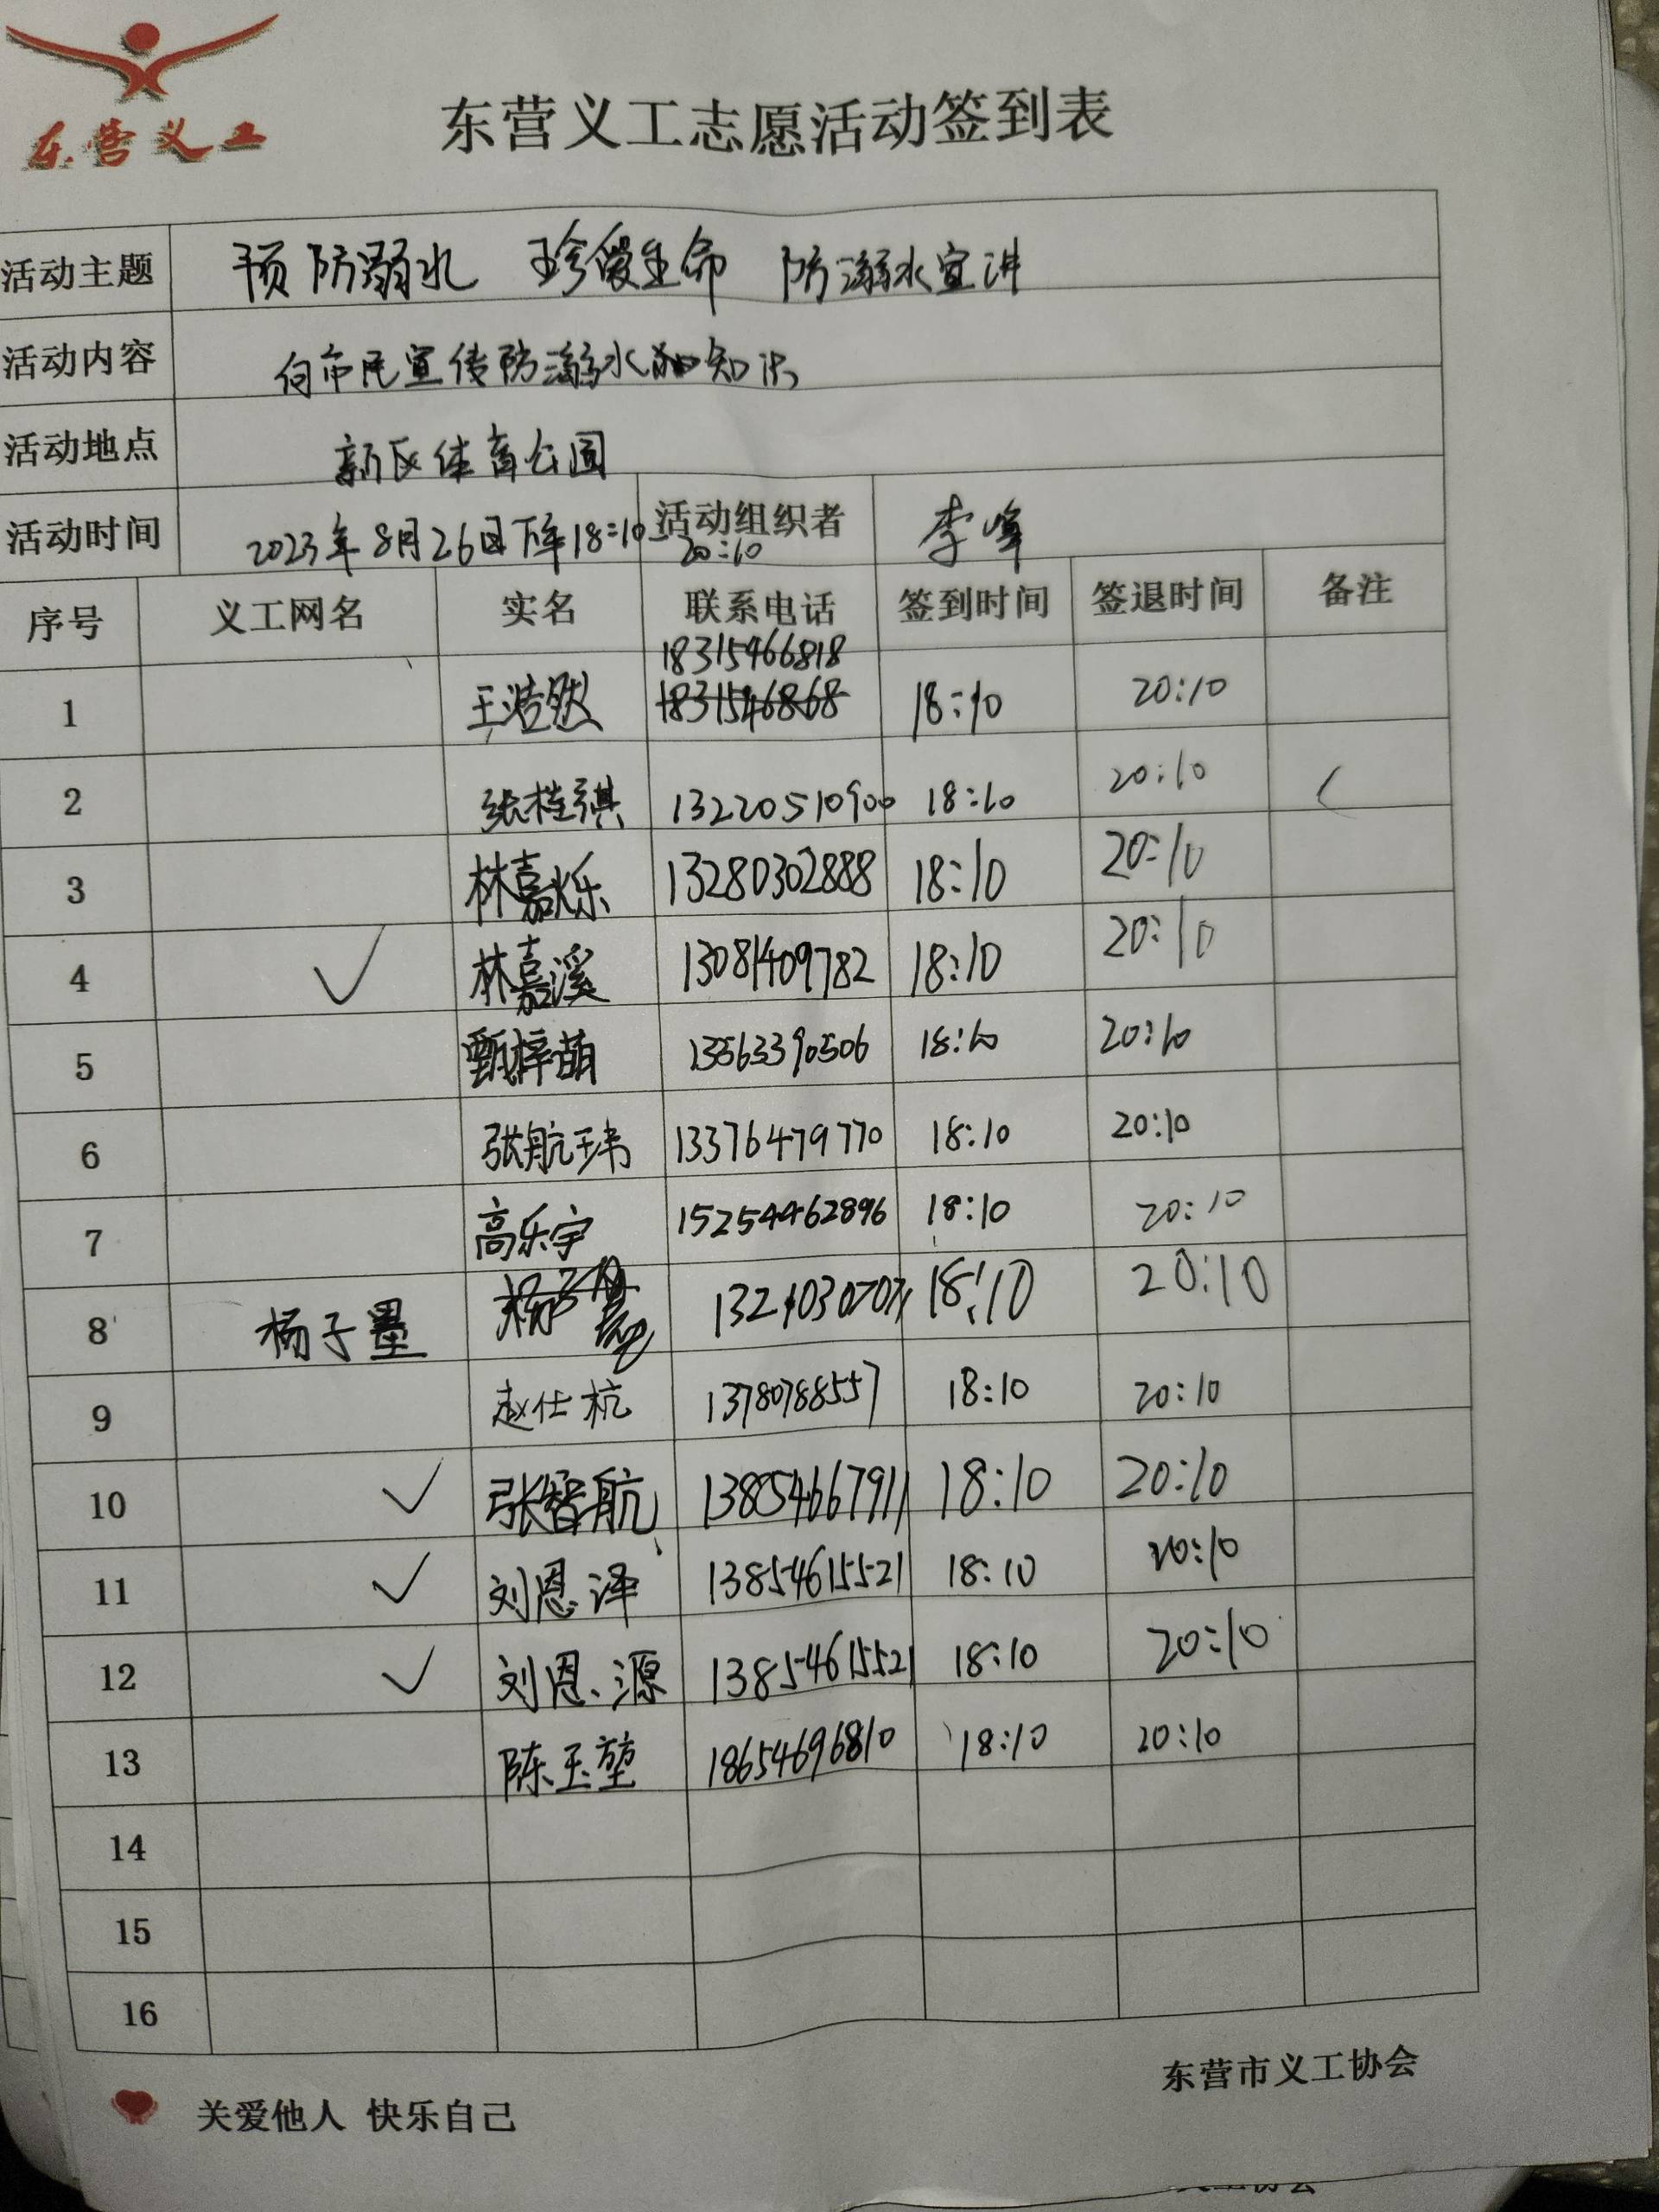 东营义工
东营义工志愿活动签到表
活动主题 预防溺水 珍爱生命 防溺水宣讲
活动内容 向市民宣传防溺水的知识
活动地点 新区体育公园
活动时间 2023年8月26日下午18:10-20:10 活动组织者 李峰
序号 义工网名 实名 联系电话 签到时间 签退时间 备注
18315466818
1 王浩然 18:10 20:10
2 13220510900 18:10 20:10
3 林嘉烁 13280302888 18:10 20:10
4 ✓ 林嘉溪 13081409782 18:10 20:10
5 甄梓萌 13563390506 18:10 20:10
6 张航玮 13376479770 18:10 20:10
7 高乐宇 15254462896 18:10 20:10
8 杨子墨 18:10 20:10
9 赵仕杭 13780788557 18:10 20:10
10 ✓ 张智航 13854667911 18:10 20:10
11 ✓ 刘恩泽 13854615521 18:10 20:10
12 ✓ 刘恩源 13854615521 18:10 20:10
13 陈玉堃 18654696810 18:10 20:10
14
15
16
东营市义工协会
关爱他人 快乐自己